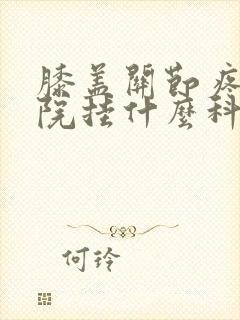 膝盖關節疼
院挂什麼科
何玲